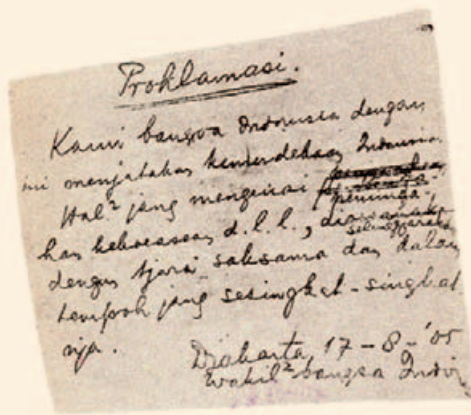 Proklamasi.
Kami bangsa Indonesia dengan
ini menjatakan kemerdekaan Indonesia.
Hal² jang mengenai
peminda-
han kekoeasaan d.l.l.,
diselenggarakan
dengan tjara saksama dan dalam
tempoh jang sesingkat-singkat
nja.
Djakarta, 17 - 8 - '05
Wakil² bangsa Indon